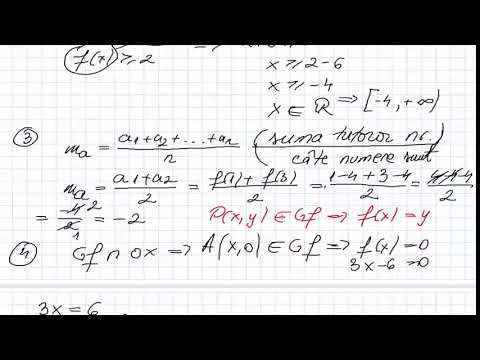 f(x) ≥ 2
x ≥ 2-6
x ≥ -4
x ∈ ℝ ⟹ [-4, +∞)
③ m_a = (a₁+a₂+...+a_n)/n (suma tuturor nr. / câte numere sunt)
m_a = (a₁+a₂)/2 = (f(1)+f(3))/2 = (1-4+3-4)/2 =
= -4/2 = -2 P(x,y) ∈ Gf ⟹ f(x) = y
④ Gf ∩ OX ⟹ A(x,0) ∈ Gf ⟹ f(x) = 0
3x-6 = 0
3x = 6